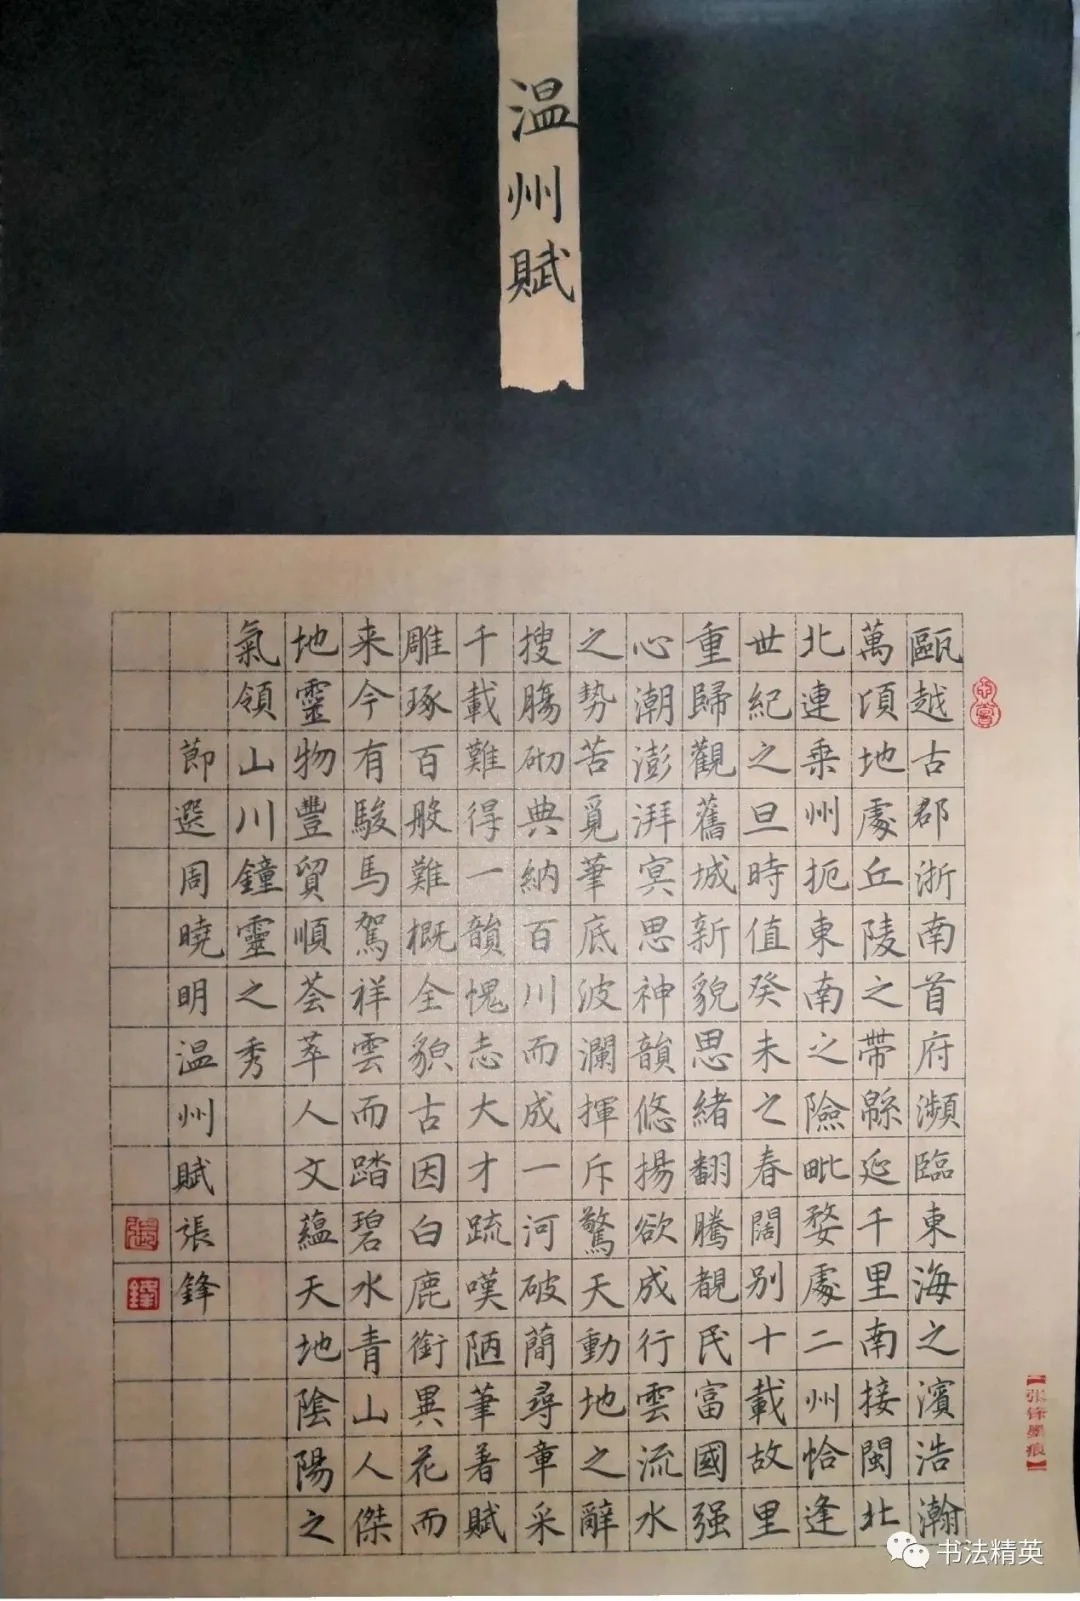 温州賦
甌越古郡浙南首府瀕臨東海之濱浩瀚
萬頃地處丘陵之帶緜延千里南接閩北
北連乘州扼東南之險毗婺處二州恰逢
世紀之旦時值癸未之春闊别十載故里
重歸觀舊城新貌思緒翻騰覩民富國强
心潮澎湃冥思神韻悠揚欲成行雲流水
之勢苦覓筆底波瀾揮斥驚天動地之辭
搜腸砌典納百川而成一河破蕳尋章采
千載難得一韻愧志大才疏嘆陋筆著賦
雕琢百般難概全貌古因白鹿銜異花而
来今有駿馬駕祥雲而踏碧水青山人傑
地靈物豐貿順荟萃人文蘊天地陰陽之
氣領山川鐘靈之秀
節選周曉明温州賦張鋒
張
鋒
【张锋墨痕】
书法精英